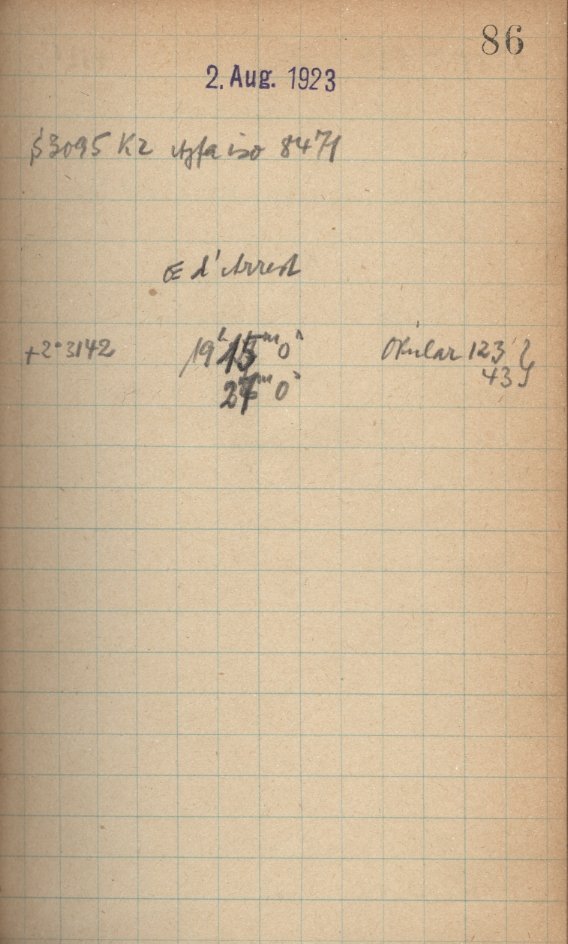 86
2. Aug. 1923
β3095 K2 Agfa iso 8471
d'Arrest
+2°3142 19ʰ 15ᵐ 0ˢ Okular 123 }
27ᵐ 0ˢ 43 }